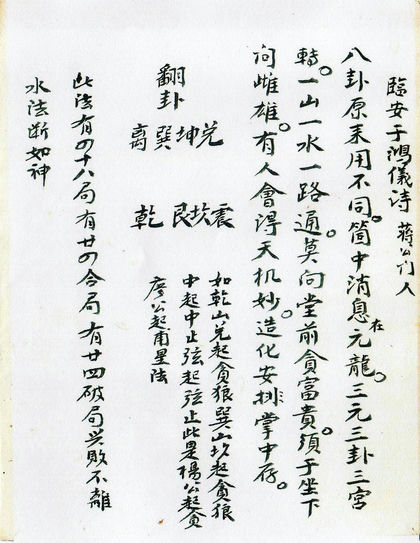 臨安于鴻儀詩 蔣公门人
八卦原来用不同。箇中消息在元龍。三元三卦三宮
轉。一山一水一路通。莫向堂前貪富貴。須于坐下
问雌雄。有人會淂天机妙。造化安排掌中存。
翻卦
兑 坤 巽 离
震 坎 艮 乾
如乾山兑起貪狼巽山坎起貪狼
中起中止弦起弦止此是楊公起貪
廖公起甫星法
此法有四十八局有廿四合局有廿四破局兴敗不離
水法断如神